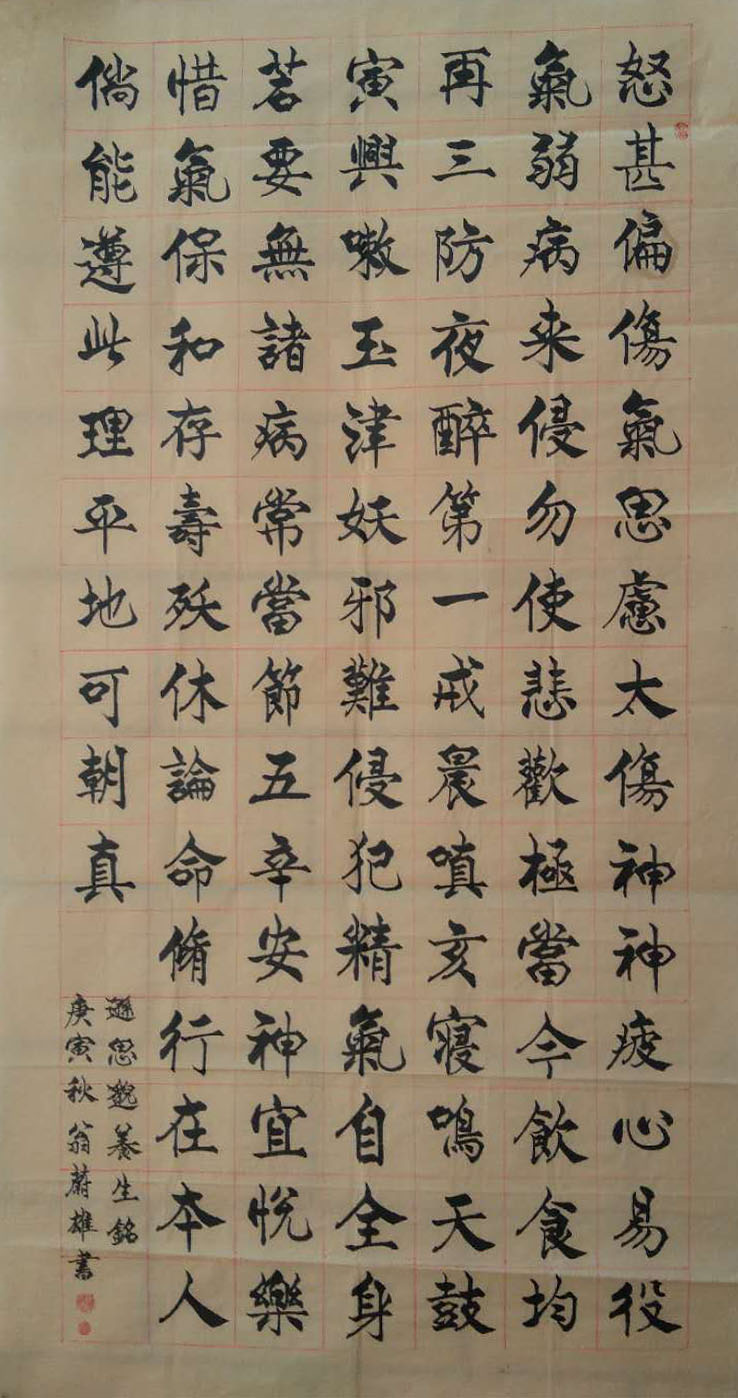 怒甚偏傷氣思慮太傷神神疲心易役
氣弱病来侵勿使悲歡極當今飲食均
再三防夜醉第一戒晨嗔亥寢鳴天鼓
寅興嗽玉津妖邪難侵犯精氣自全身
若要無諸病常當節五辛安神宜悅樂
惜氣保和存壽殀休論命脩行在本人
倘能遵此理平地可朝真
遜思邈養生銘
庚寅秋翁蔚雄書